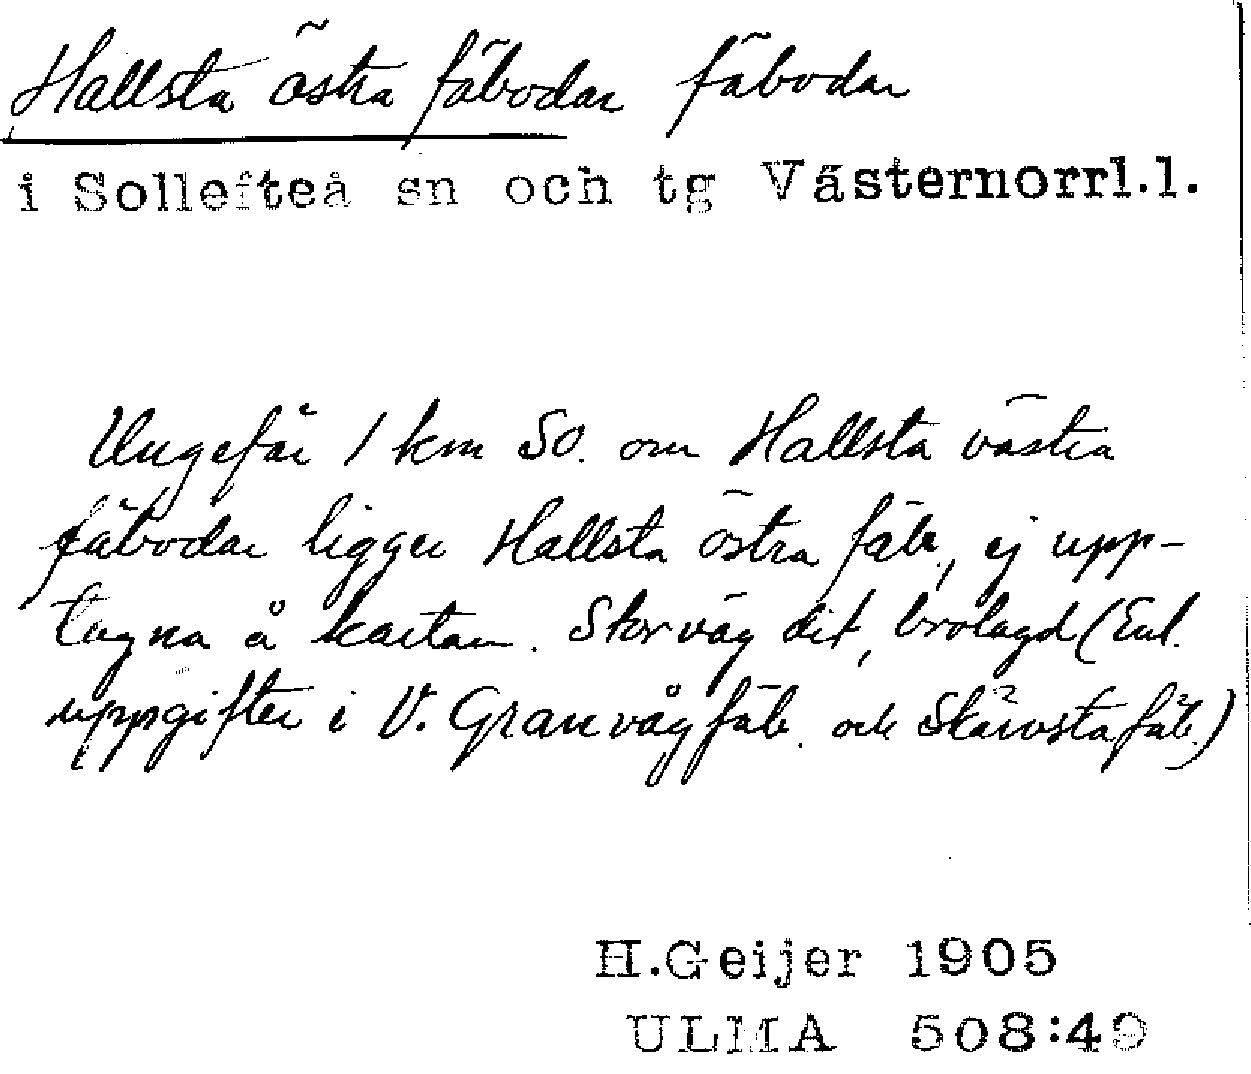 Hallsta östra fäbodar fäbodar
i Sollefteå sn och tg Västernorrl.l.
Ungefär 1 km SO. om Hallsta västra
fäbodar ligger Hallsta östra fäb., ej upp-
tagna å kartan. Storväg dit, brolagd (Enl.
uppgifter i V. Granvåg fäb. och Skärvsta fäb.)
H.Geijer 1905
ULMA 508:49